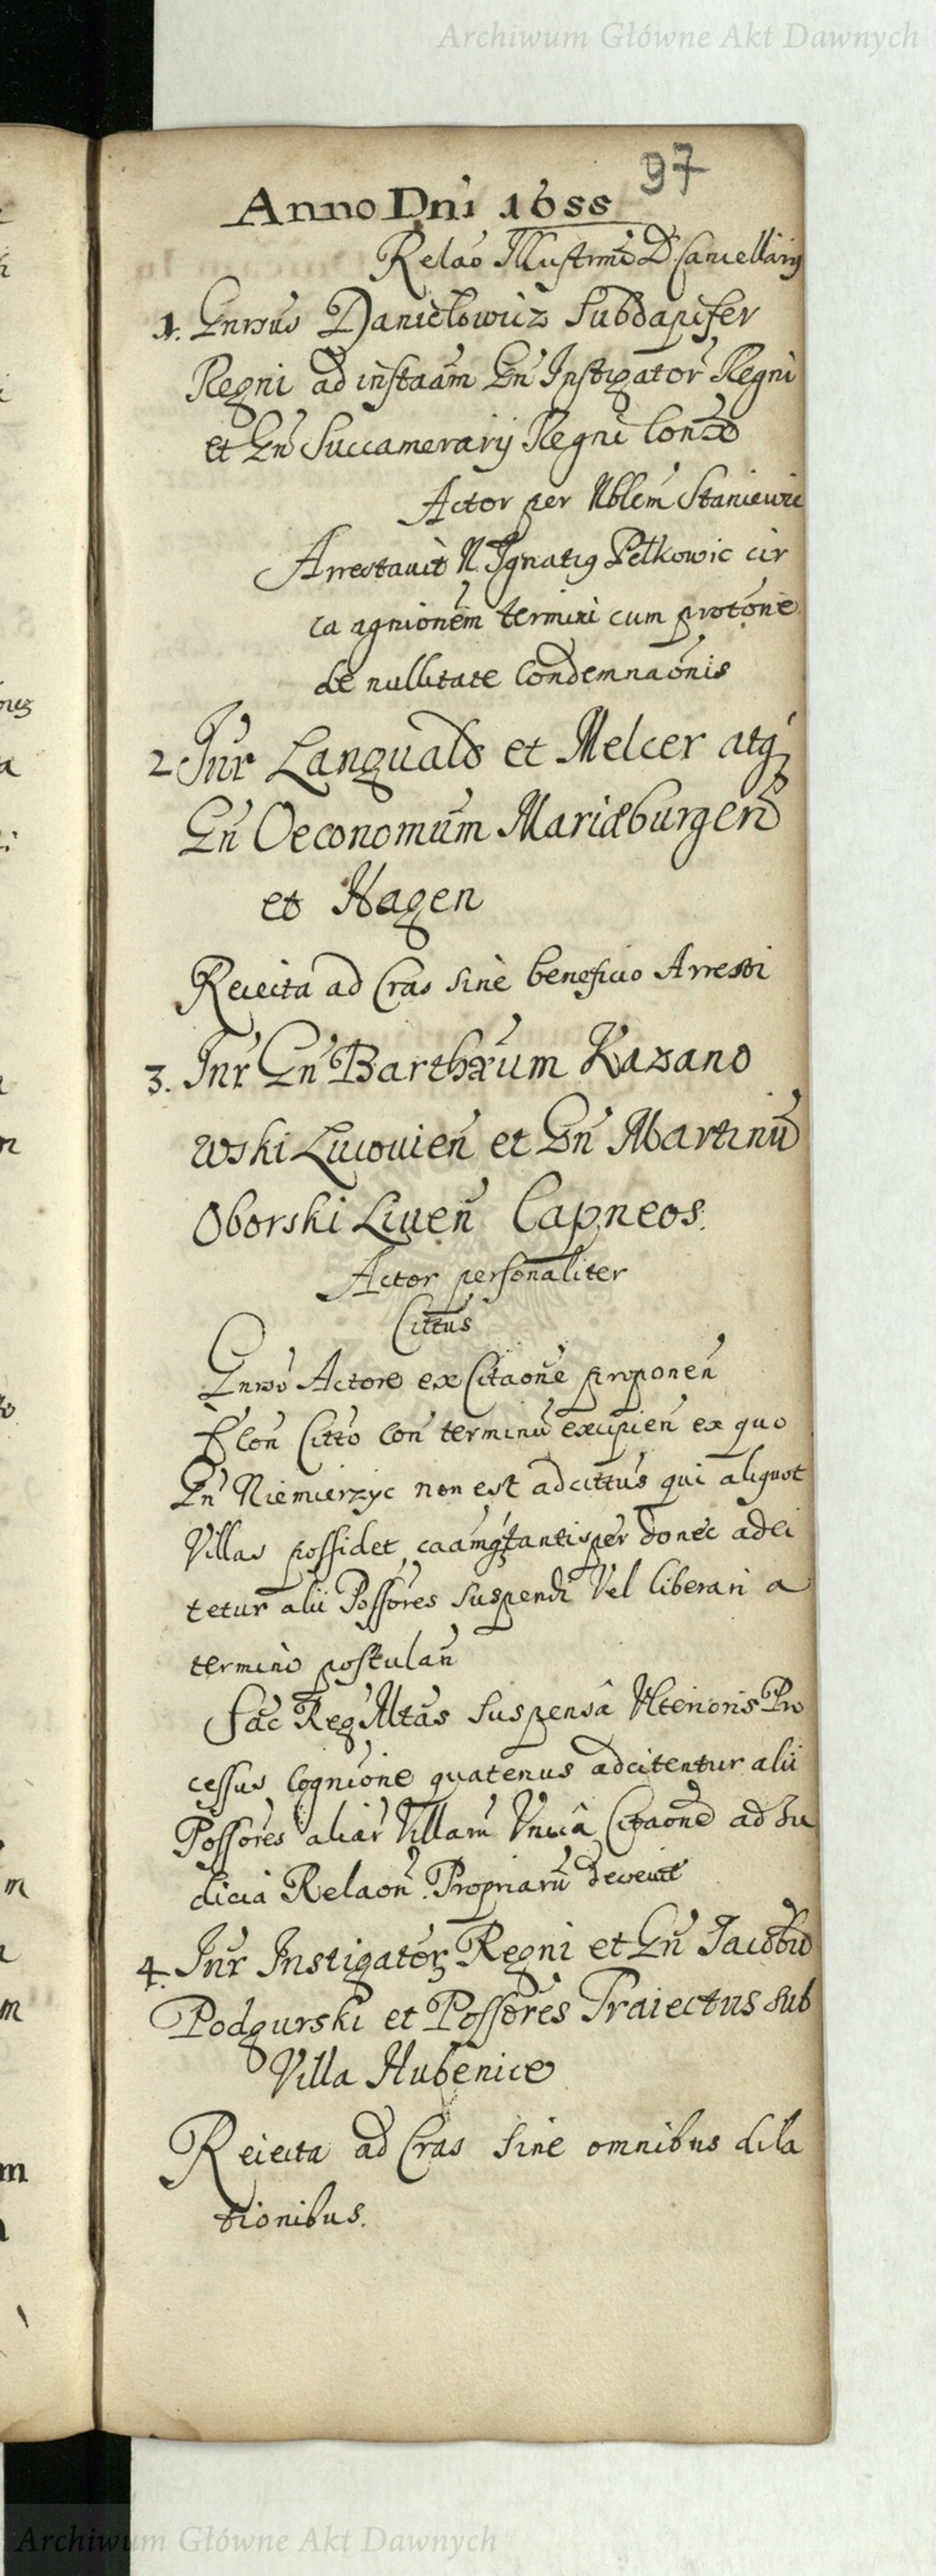 Archiwum Główne Akt Dawnych
97
Anno Dni 1655
Relao Illustrmi D. Cancellarij
1. Gnrsus Daniełowicz Subdapifer
Regni ad instaam Gn Instigator Regni
et Gn Succamerarij Regni Conto
Actor per Nblem Staniewic
Arrestavit N. Ignatig Pełkowic cir
ca agnionem termini cum protone
de nullitate Condemnaonis
2 Inr Languald et Melcer atq
Gn Oeconomum Mariæburgen
et Hagen
Reiecta ad Cras sine beneficio Arresti
3. Inr Gn Barthæum Kazano
wski Lucovien et Gn Martinu
Oborski Liven Capneos.
Actor personaliter
Cittus
Gnrso Actore ex Citaone proponen
Et Con Citto Con terminu excipien ex quo
Gn Niemierzyc non est adcittus qui aliquot
Villas possidet, caamq tantisper donec adci
tetur alii Possores suspendi Vel liberari a
termino postulan
Sac Reg Mtas suspensâ Ulterioris Pro
cessus Cognione quatenus adcitentur alii
Possores aliar Villaru Unicâ Citaone ad Iu
dicia Relaon Propriaru decevit
4. Inr Instigator Regni et Gn Iacobu
Podgurski et Possores Traiectus sub
Villa Hubenice
Reiecta ad Cras sine omnibus dila
tionibus.
Archiwum Główne Akt Dawnych